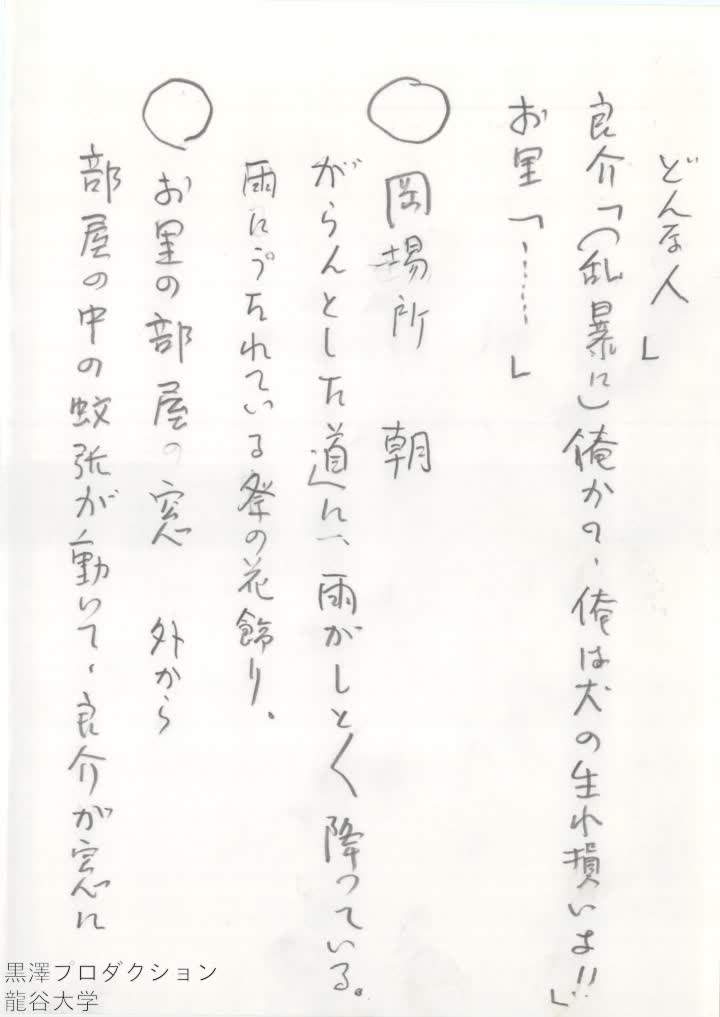 どんな人」
良介「(乱暴に)俺かの、俺は犬の生れ損いよ!!」
お里「……」
○岡場所 朝
がらんとした道に、雨がしと〱降っている。
雨にうたれている祭の花飾り。
○お里の部屋の窓 外から
部屋の中の蚊張が動いて、良介が窓に
黒澤プロダクション
龍谷大学